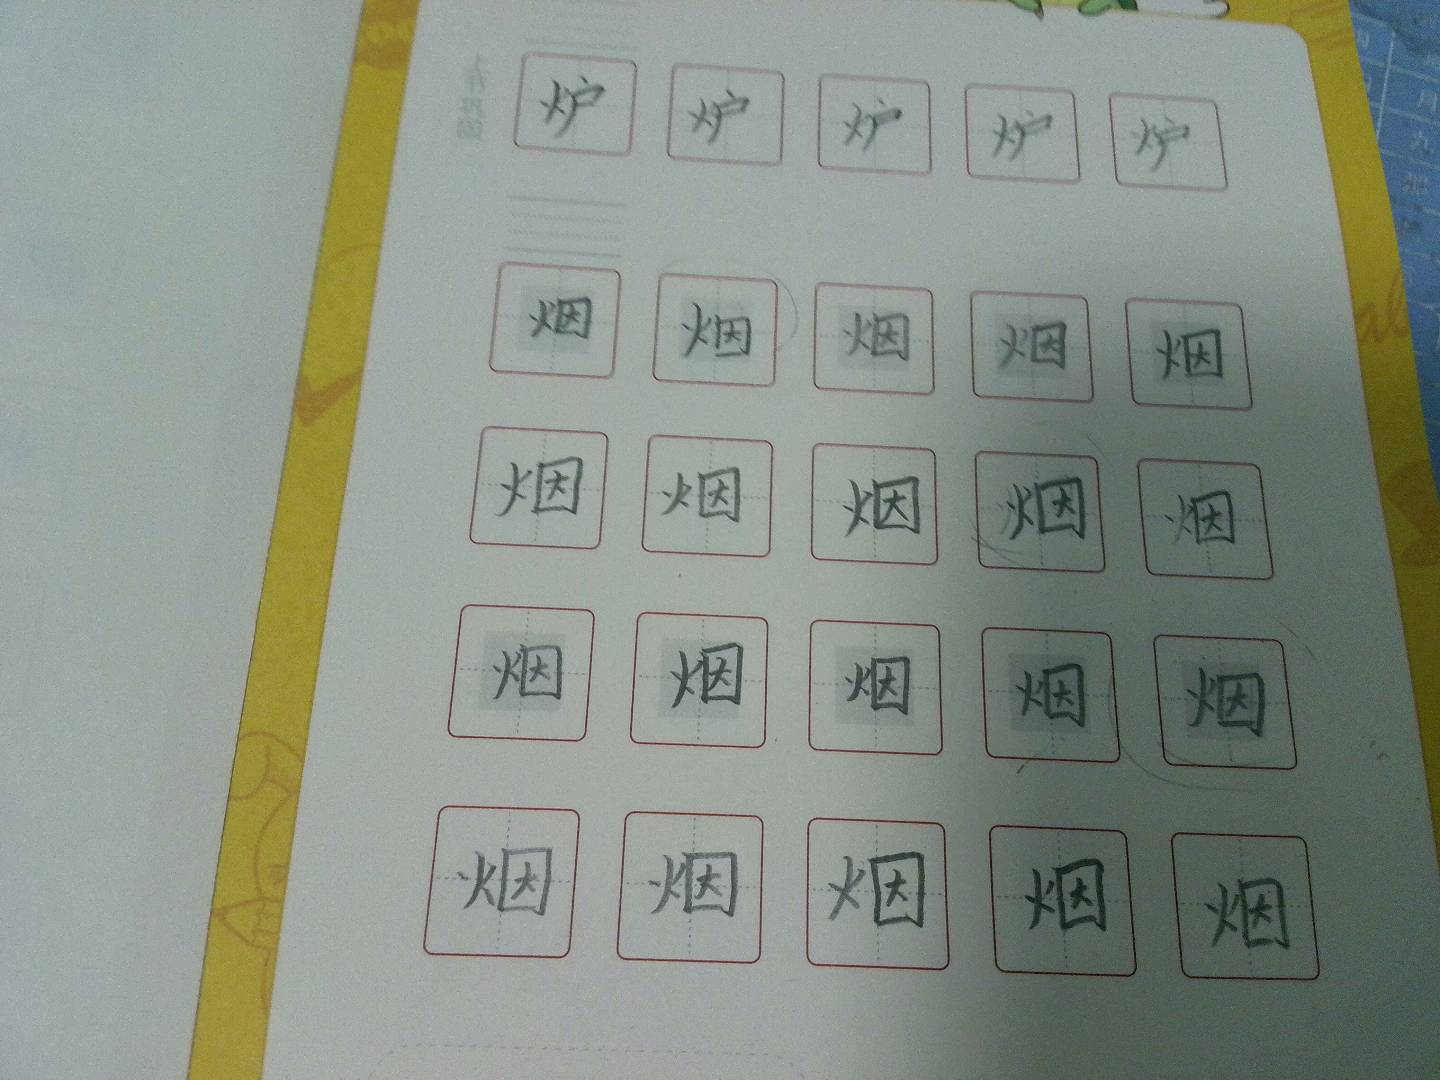 炉 炉 炉 炉 炉
烟 烟 烟 烟 烟
烟 烟 烟 烟 烟
烟 烟 烟 烟 烟
烟 烟 烟 烟 烟